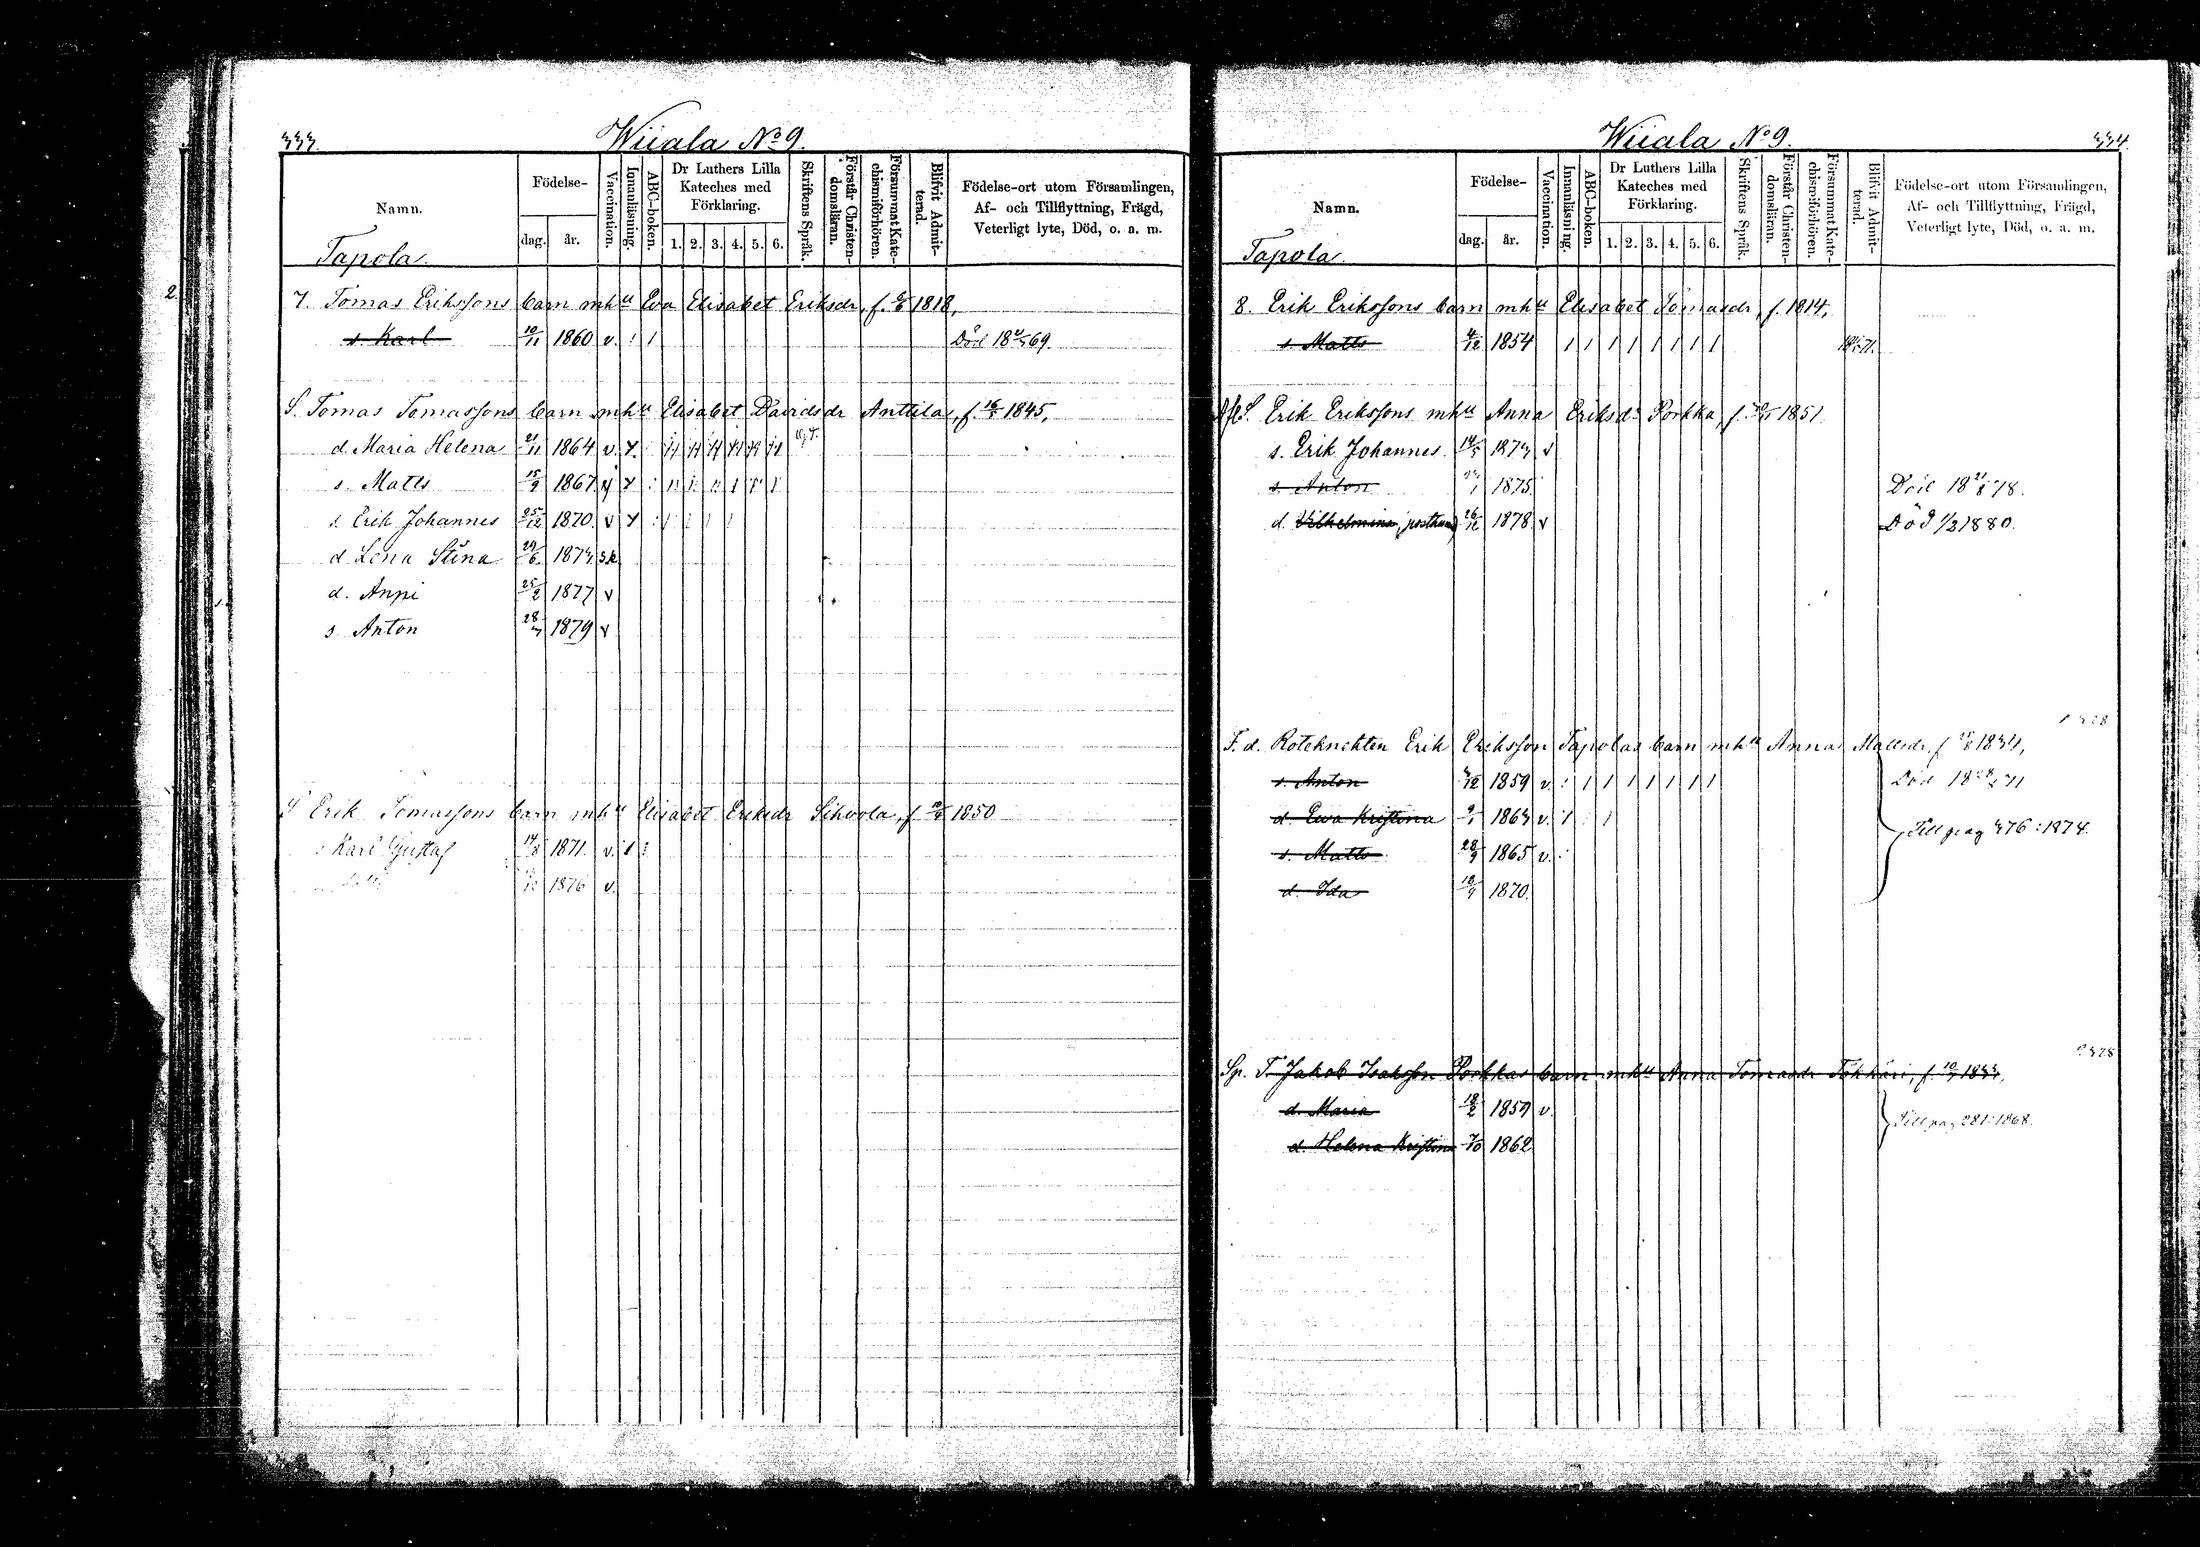 333.
Wiiala No 9.
Namn.
Födelse-
dag.
år.
Vaccination.
Innanläsning.
ABC-boken.
Dr Luthers Lilla
Kateches med
Förklaring.
1. 2. 3. 4. 5. 6.
Skriftens Språk.
Förstår Christen-
domsläran.
Försummat Kate-
chismiförhören.
Blifvit Admit-
terad.
Födelse-ort utom Församlingen,
Af- och Tillflyttning, Frägd,
Veterligt lyte, Död, o. a. m.
Tapola.
2
7. Tomas Erikssons barn mhu Eva Elisabet Eriksdr, f. 1818,
s. Karl 10/11 1860 v. Död 69.
S. Tomas Tomassons barn mhu Elisabet Davidsdr Anttila, f. 1845,
d Maria Helena 21/11 1864 v.
s. Matts 15/9 1867 v
s. Erik Johannes 25/12 1870. v
d Lena Stina 29/6 1873
d. Anni 25/2 1877 v
s. Anton 28/3 1879 v
S Erik Tomassons barn mhu Elisabet Eriksdr Sihvola, f 1850
s Karl Gustaf 1871. v.
1876 v.
334.
Wiiala No 9.
Namn.
Födelse-
dag.
år.
Vaccination.
Innanläsning.
ABC-boken.
Dr Luthers Lilla
Kateches med
Förklaring.
1. 2. 3. 4. 5. 6.
Skriftens Språk.
Förstår Christen-
domsläran.
Försummat Kate-
chismiförhören.
Blifvit Admit-
terad.
Födelse-ort utom Församlingen,
Af- och Tillflyttning, Frägd,
Veterligt lyte, Död, o. a. m.
Tapola
8. Erik Erikssons barn mhu Elisabet Tomasdr, f. 1814,
s. Matts 4/12 1854
S. Erik Erikssons mhu Anna Eriksdr Porkka, f. 1851
s. Erik Johannes 14/5 1873 v
s. Anton 1875 Död 18 21/8 78.
d. Vilhelmina (posthum) 26/12 1878 v Död 1/2 1880.
F. d. Roteknekten Erik Eriksson Tapolas barn mhu Anna Mattsdr, f 1834,
s. Anton 3/12 1859 v. Död 18 71
d. Ewa Kristina 1863 v.
Till pag 376: 1874.
s. Matts 28/9 1865 v.
d. Ida 1870.
Sp. T. Jakob Isaksson Porkkas barn mhu Anna Tomasdr f. 1833,
d. Maria 18/2 1859 v.
Till pag 281: 1868.
d. Helena Kristina 7/10 1862